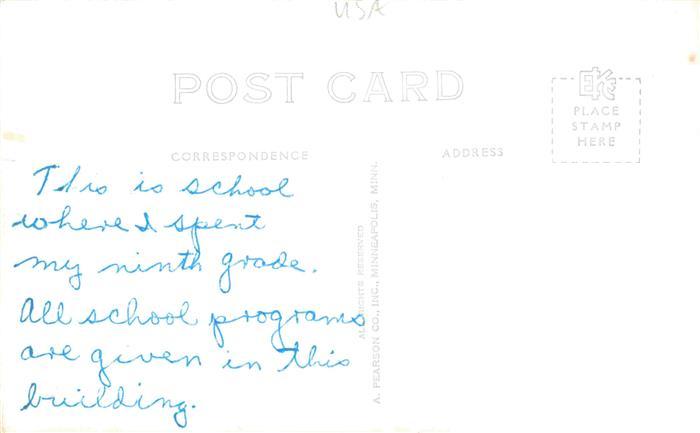 USA
POST CARD
EKC
PLACE
STAMP
HERE
CORRESPONDENCE
ADDRESS
This is school
where I spent
my ninth grade.
All school programs
are given in this
building.
ALL RIGHTS RESERVED
A. PEARSON CO., INC., MINNEAPOLIS, MINN.